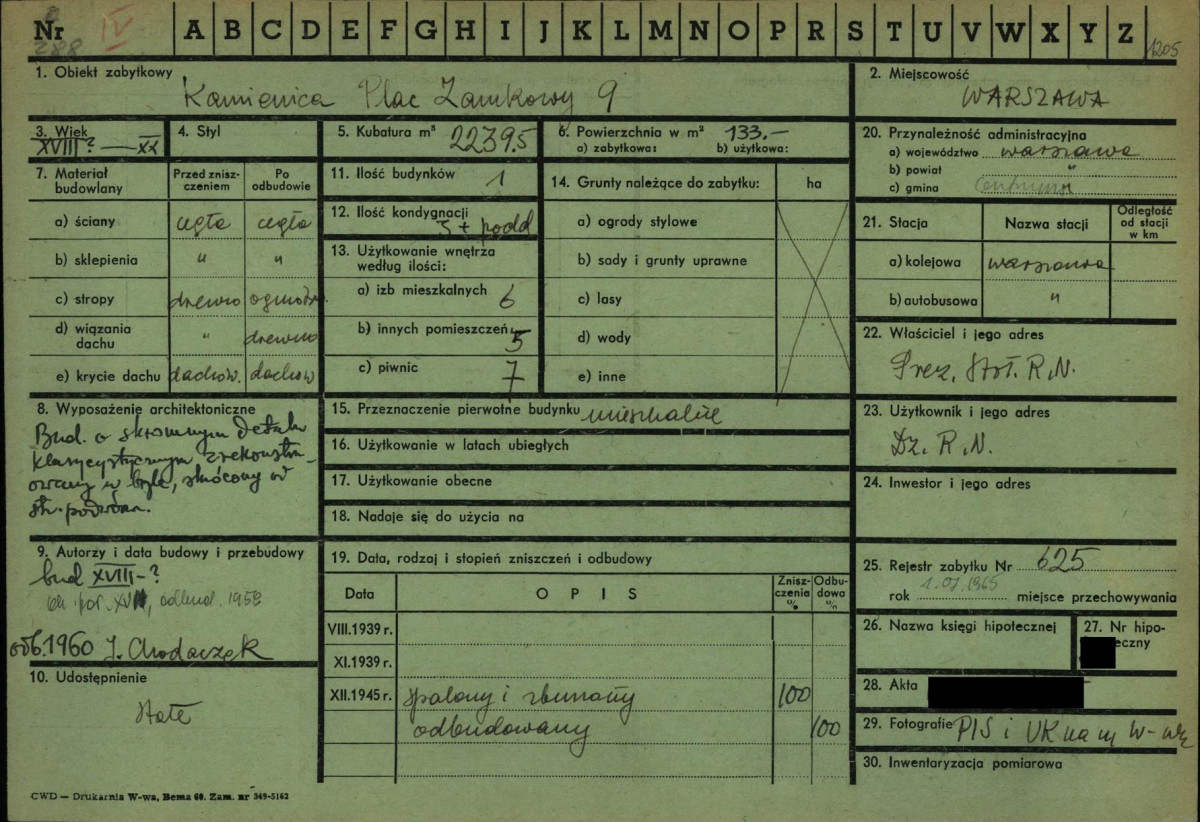 Nr 288 IV A B C D E F G H I J K L M N O P R S T U V W X Y Z 1205
1. Obiekt zabytkowy
Kamienica Plac Zamkowy 9
2. Miejscowość
WARSZAWA
3. Wiek
XVIII? — XX
4. Styl
5. Kubatura m³ 2239.5
6. Powierzchnia w m² 133.-
a) zabytkowa: b) użytkowa:
7. Materiał budowlany
Przed zniszczeniem
Po odbudowie
a) ściany cegła cegła
b) sklepienia " "
c) stropy drewno ogniotr.
d) wiązania dachu " drewno
e) krycie dachu dachów. dachów
8. Wyposażenie architektoniczne
Bud. o skromnym detalu
klasycystycznym zrekonstru-
owany w bryle, skrócony od
str. podwórz.
9. Autorzy i data budowy i przebudowy
bud XVIII-?
odbud. 1958
odb. 1960 J. Chodaczek
10. Udostępnienie
stałe
11. Ilość budynków 1
12. Ilość kondygnacji
5 + podd
13. Użytkowanie wnętrza według ilości:
a) izb mieszkalnych 6
b) innych pomieszczeń 5
c) piwnic 7
14. Grunty należące do zabytku: ha
a) ogrody stylowe
b) sady i grunty uprawne
c) lasy
d) wody
e) inne
15. Przeznaczenie pierwotne budynku mieszkalne
16. Użytkowanie w latach ubiegłych
17. Użytkowanie obecne
18. Nadaje się do użycia na
19. Data, rodzaj i stopień zniszczeń i odbudowy
Data OPIS Zniszczenia % Odbudowa %
VIII.1939 r.
XI.1939 r.
XII.1945 r. spalony i zburzony 100
odbudowany 100
20. Przynależność administracyjna
a) województwo warszawa
b) powiat "
c) gmina Centrum
21. Stacja Nazwa stacji Odległość od stacji w km
a) kolejowa warszawa
b) autobusowa "
22. Właściciel i jego adres
Prez. Stoł. R.N.
23. Użytkownik i jego adres
Dz. R.N.
24. Inwestor i jego adres
25. Rejestr zabytku Nr 625
rok 1.07.1965 miejsce przechowywania
26. Nazwa księgi hipotecznej
27. Nr hipoteczny
28. Akta
29. Fotografie PIS i UK na m W-wę
30. Inwentaryzacja pomiarowa
CWD — Drukarnia W-wa, Bema 60. Zam. nr 349-5162